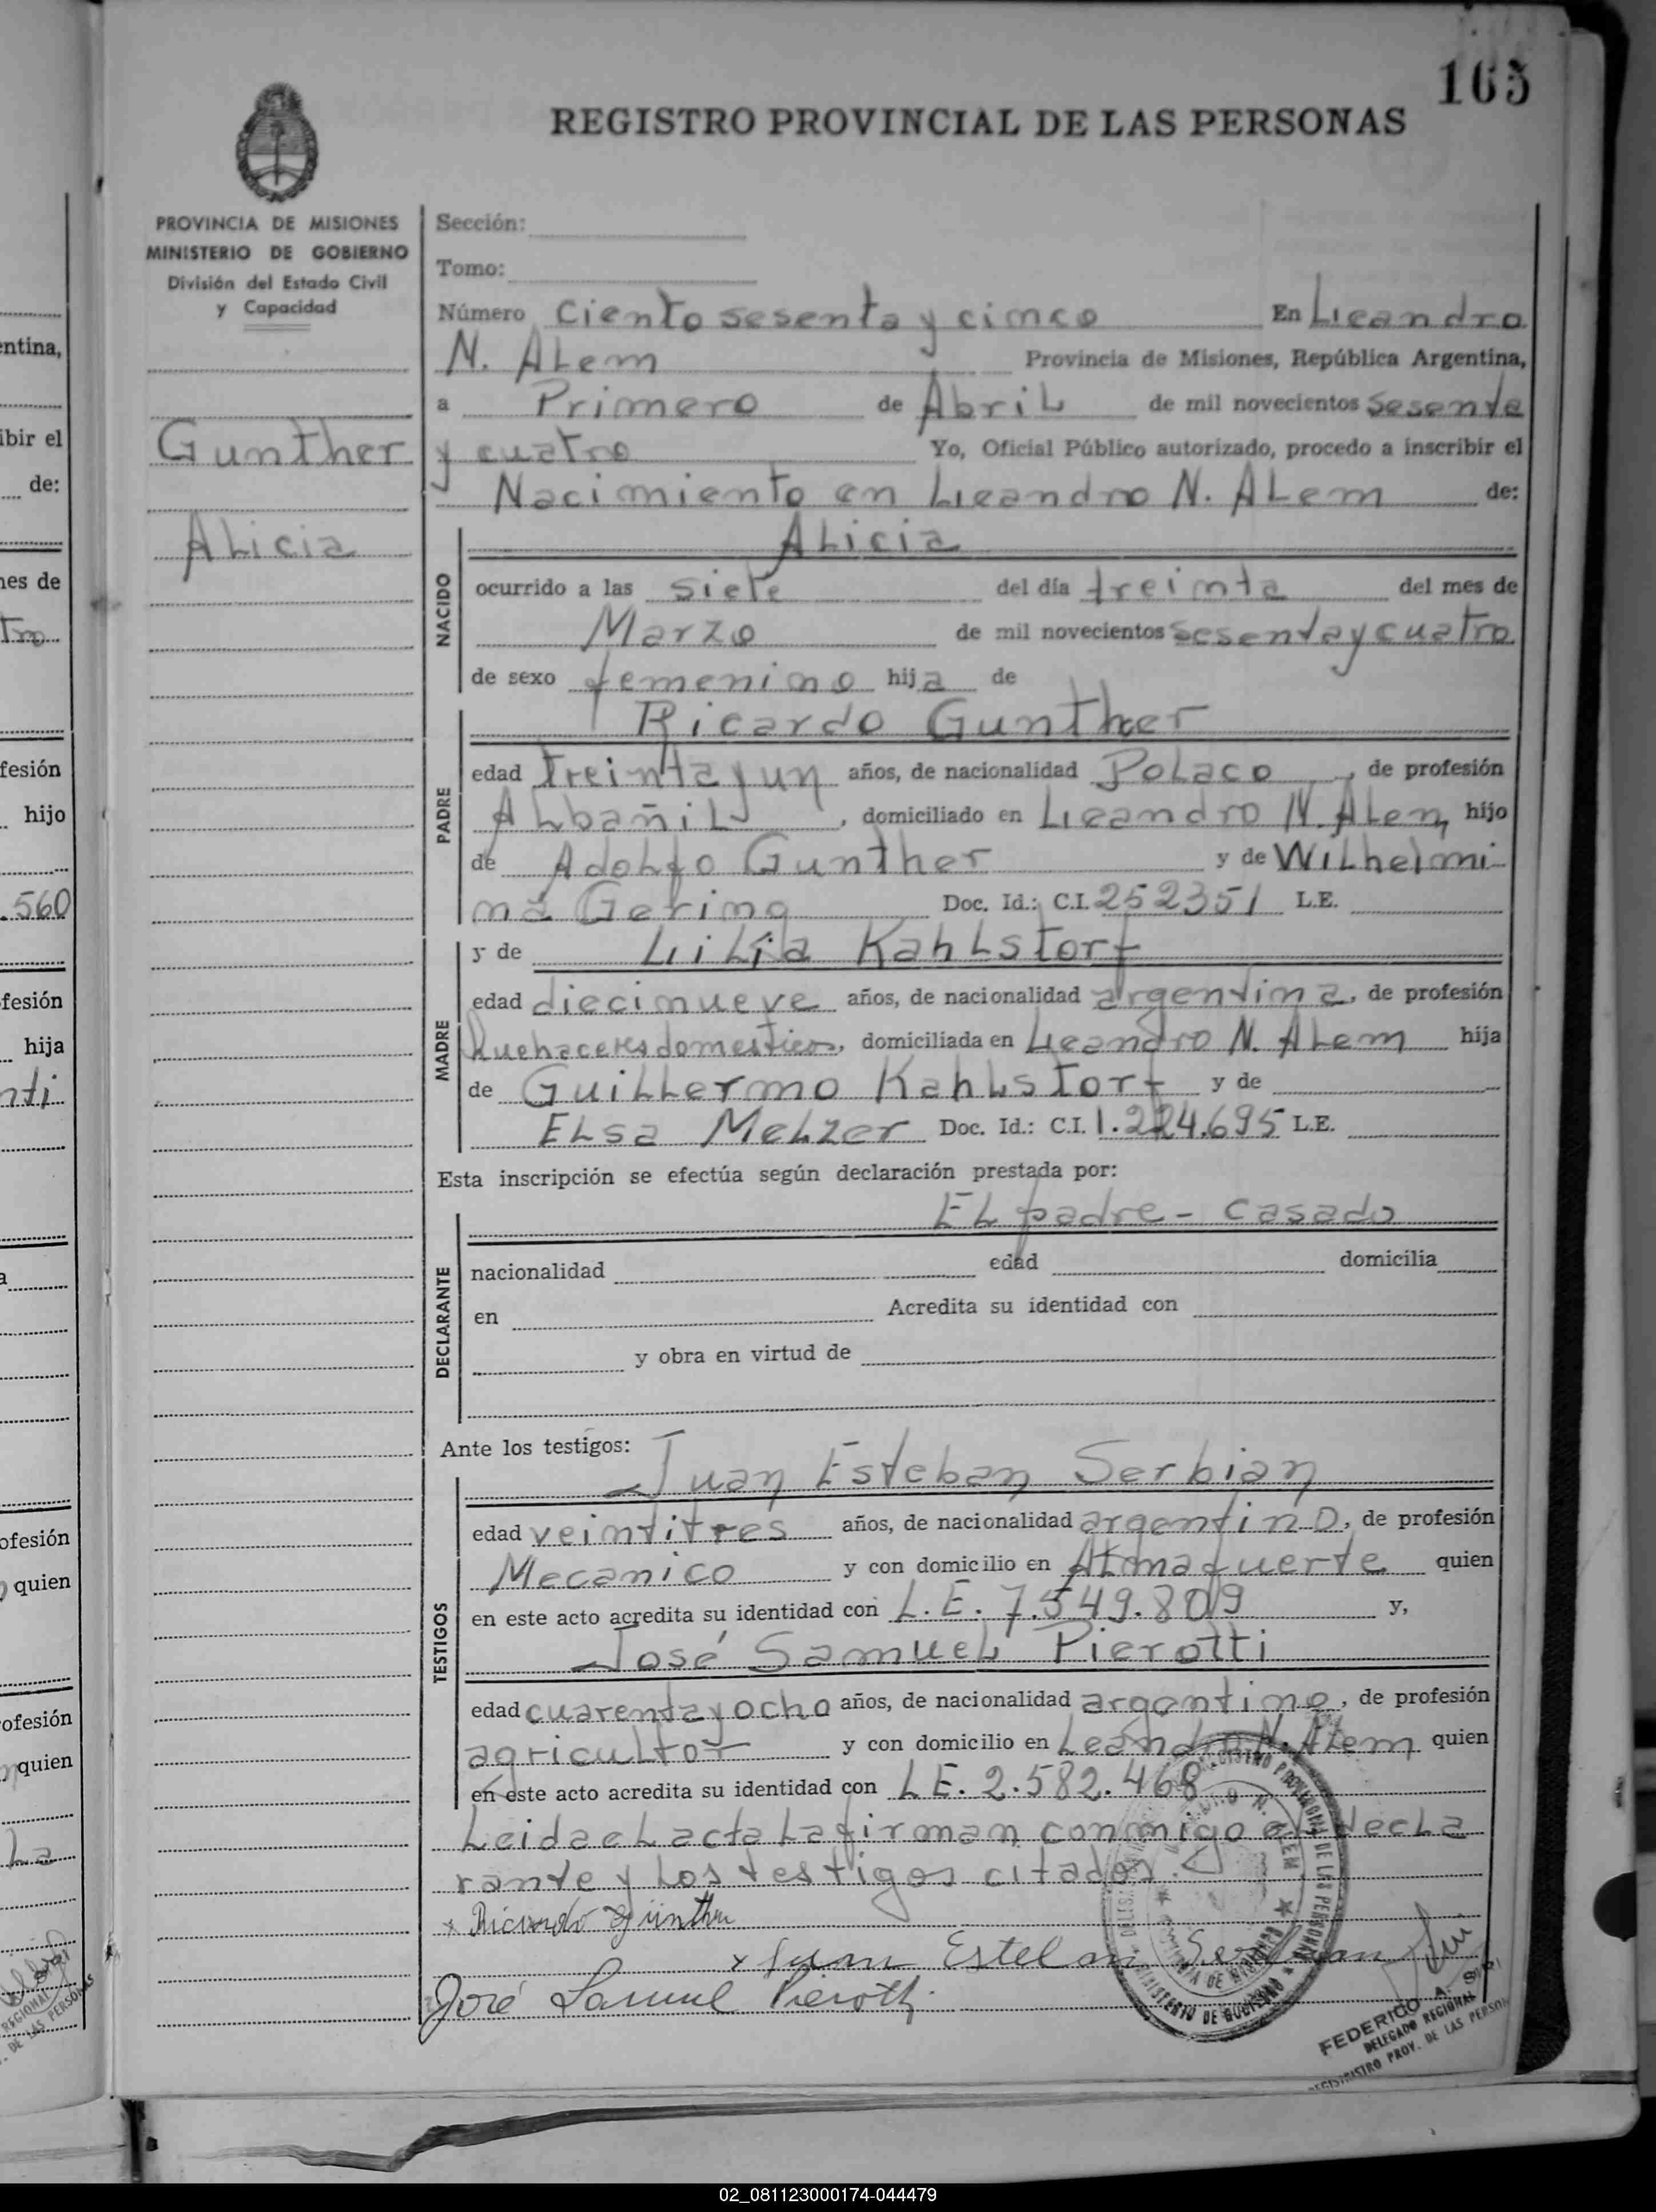 165
REGISTRO PROVINCIAL DE LAS PERSONAS
PROVINCIA DE MISIONES
MINISTERIO DE GOBIERNO
División del Estado Civil
y Capacidad
Gunther
Alicia
Sección:
Tomo:
Número Ciento sesenta y cinco En Leandro
N. Alem Provincia de Misiones, República Argentina,
a Primero de Abril de mil novecientos sesenta
y cuatro Yo, Oficial Público autorizado, procedo a inscribir el
Nacimiento en Leandro N. Alem de:
NACIDO
Alicia
ocurrido a las siete del día treinta del mes de
Marzo de mil novecientos sesenta y cuatro
de sexo femenino hija de
PADRE
Ricardo Gunther
edad treinta y un años, de nacionalidad Polaco, de profesión
Albañil, domiciliado en Leandro N. Alem, hijo
de Adolfo Gunther y de Wilhelmi-
na Gering Doc. Id.: C.I. 252351 L.E.
MADRE
y de Lilia Kahlstorf
edad diecinueve años, de nacionalidad argentina, de profesión
quehaceres domesticos, domiciliada en Leandro N. Alem hija
de Guillermo Kahlstorf y de
Elsa Melzer Doc. Id.: C.I. 1.224.695 L.E.
Esta inscripción se efectúa según declaración prestada por:
DECLARANTE
El padre - casado
nacionalidad edad domicilia
en Acredita su identidad con
y obra en virtud de
Ante los testigos:
TESTIGOS
Juan Esteban Serbian
edad veintitres años, de nacionalidad argentino, de profesión
Mecanico y con domicilio en Almafuerte quien
en este acto acredita su identidad con L.E. 7.549.809 y,
José Samuel Pierotti
edad cuarenta y ocho años, de nacionalidad argentino, de profesión
agricultor y con domicilio en Leandro N. Alem quien
en este acto acredita su identidad con L.E. 2.582.468
Leida el acta la firman conmigo el decla
rante y los testigos citados.
x Ricardo Günther
x Juan Esteban Serbian
José Samuel Pierotti
REGISTRO PROVINCIAL DE LAS PERSONAS
MINISTERIO DE GOBIERNO
FEDERICO A.
DELEGADO REGIONAL
REGISTRO PROV. DE LAS PERSON
entina,
ibir el
de:
nes de
tro
fesión
hijo
.560
fesión
hija
nti
a
ofesión
quien
ofesión
quien
La
REGIONAL
DE LAS PERSONAS
02_081123000174-044479